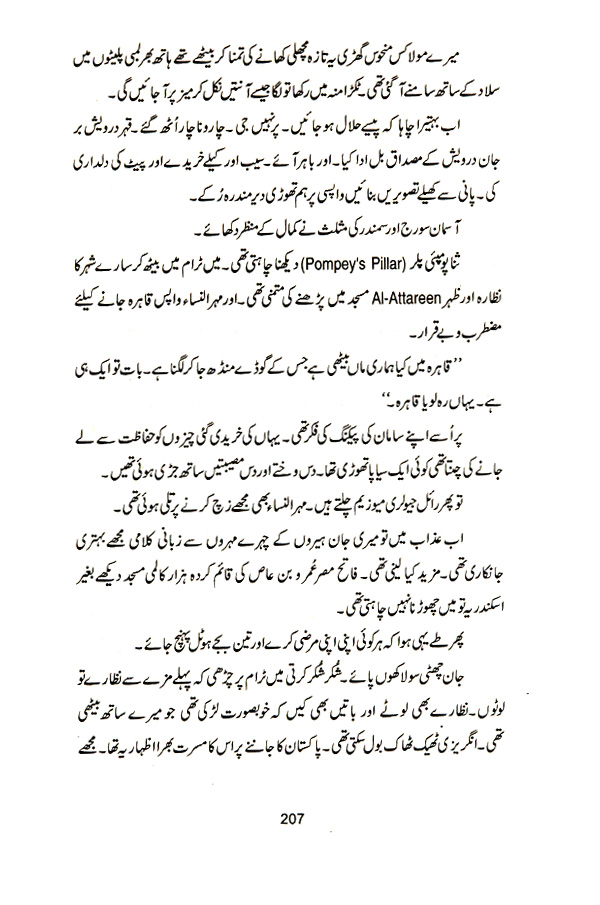 میرے مولا کس منحوس گھڑی یہ تازہ مچھلی کھانے کی تمنا کر بیٹھے تھے ہاتھ بھر لمبی پلیٹوں میں
سلاد کے ساتھ سامنے آ گئی تھی۔ ٹکڑا منہ میں رکھا تو لگا جیسے آنتیں نکل کر میز پر آ جائیں گی۔
اب بہتیرا چاہا کہ پیسے حلال ہو جائیں۔ پر نہیں جی۔ چار و ناچار اُٹھ گئے۔ قہر درویش بر
جان درویش کے مصداق بل ادا کیا۔ اور باہر آئے۔ سیب اور کیلے خریدے اور پیٹ کی دلداری
کی۔ پانی سے کھیلے تصویریں بنائیں واپسی پر ہم تھوڑی دیر مندرہ رُکے۔
آسمان سورج اور سمندر کی مثلث نے کمال کے منظر دکھائے۔
ثنا پومپئی پلر (Pompey's Pillar) دیکھنا چاہتی تھی۔ میں ٹرام میں بیٹھ کر سارے شہر کا
نظارہ اور ظہر Al-Attareen مسجد میں پڑھنے کی متمنی تھی۔ اور مہر النساء واپس قاہرہ جانے کیلئے
مضطرب و بے قرار۔
’’قاہرہ میں کیا ہماری ماں بیٹھی ہے جس کے گوڈے منڈھ جا کر لگنا ہے۔ بات تو ایک ہی
ہے۔ یہاں رہ لو یا قاہرہ۔‘‘
پر اُسے اپنے سامان کی پیکنگ کی فکر تھی۔ یہاں کی خریدی گئی چیزوں کو حفاظت سے لے
جانے کی چنتا تھی کوئی ایک سیاپا تھوڑی تھا۔ دس وختے اور دس مصیبتیں ساتھ جڑی ہوئی تھیں۔
تو پھر رائل جیولری میوزیم چلتے ہیں۔ مہر النساء بھی مجھے زچ کرنے پر تلی ہوئی تھی۔
اب عذاب میں تو میری جان ہیروں کے چہرے مہروں سے زبانی کلامی مجھے بہتری
جانکاری تھی۔ مزید کیا لینی تھی۔ فاتح مصر عُمر و بن عاص کی قائم کردہ ہزار کالمی مسجد دیکھے بغیر
اسکندریہ تو میں چھوڑنا نہیں چاہتی تھی۔
پھر طے یہی ہوا کہ ہر کوئی اپنی اپنی مرضی کرے اور تین بجے ہوٹل پہنچ جائے۔
جان چھٹی سو لاکھوں پائے۔ شُکر شُکر کرتی میں ٹرام پر چڑھی کہ پہلے مزے سے نظارے تو
لوٹوں۔ نظارے بھی لوٹے اور باتیں بھی کیں کہ خوبصورت لڑکی تھی جو میرے ساتھ بیٹھی
تھی۔ انگریزی ٹھیک ٹھاک بول سکتی تھی۔ پاکستان کا جاننے پر اس کا مسرت بھرا اظہار یہ تھا۔ مجھے
207